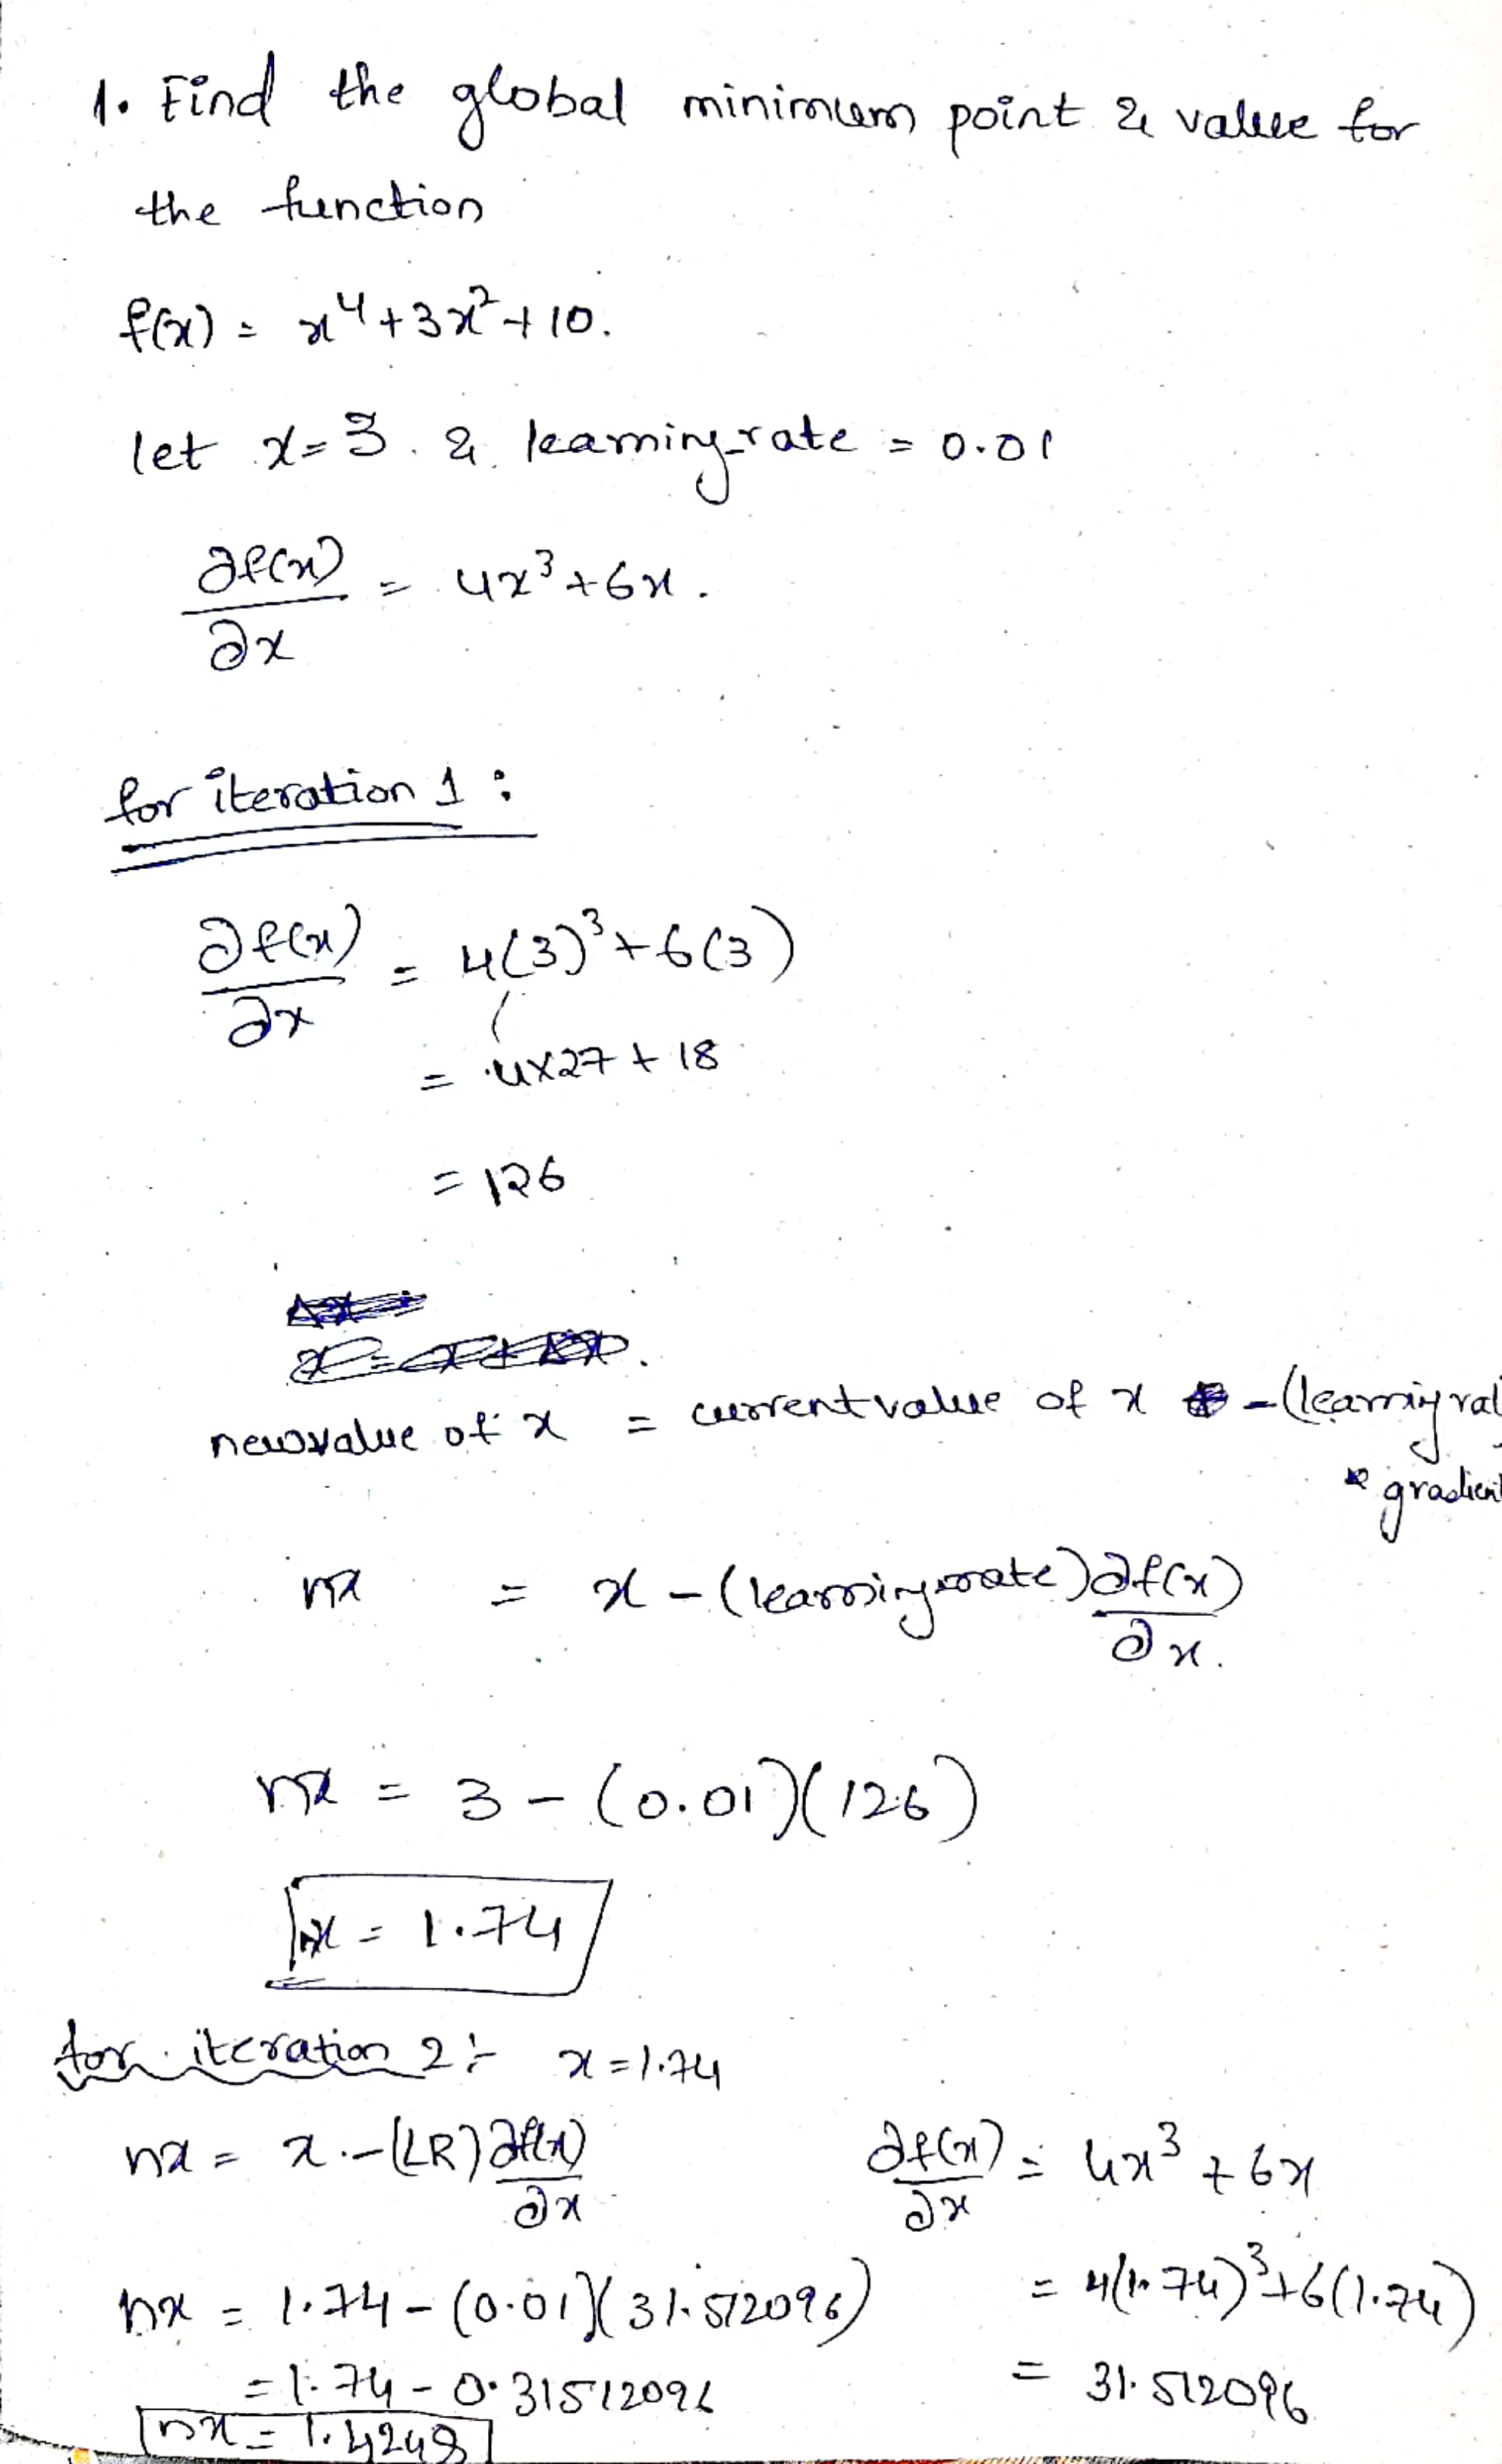 1. Find the global minimum point & value for
the function
f(x) = x⁴+3x²+10.
let x=3. & learning_rate = 0.01
∂f(x)/∂x = 4x³+6x.
for iteration 1 :
∂f(x)/∂x = 4(3)³+6(3)
= 4x27 + 18
= 126
new value of x = current value of x - (learning rat
* gradient
nx = x - (learning rate) ∂f(x)/∂x.
nx = 3 - (0.01)(126)
nx = 1.74
for iteration 2 :- x = 1.74
nx = x - (LR) ∂f(x)/∂x
∂f(x)/∂x = 4x³ + 6x
nx = 1.74 - (0.01)(31.512096)
= 4(1.74)³+6(1.74)
= 1.74 - 0.31512096
= 31.512096
nx = 1.4248